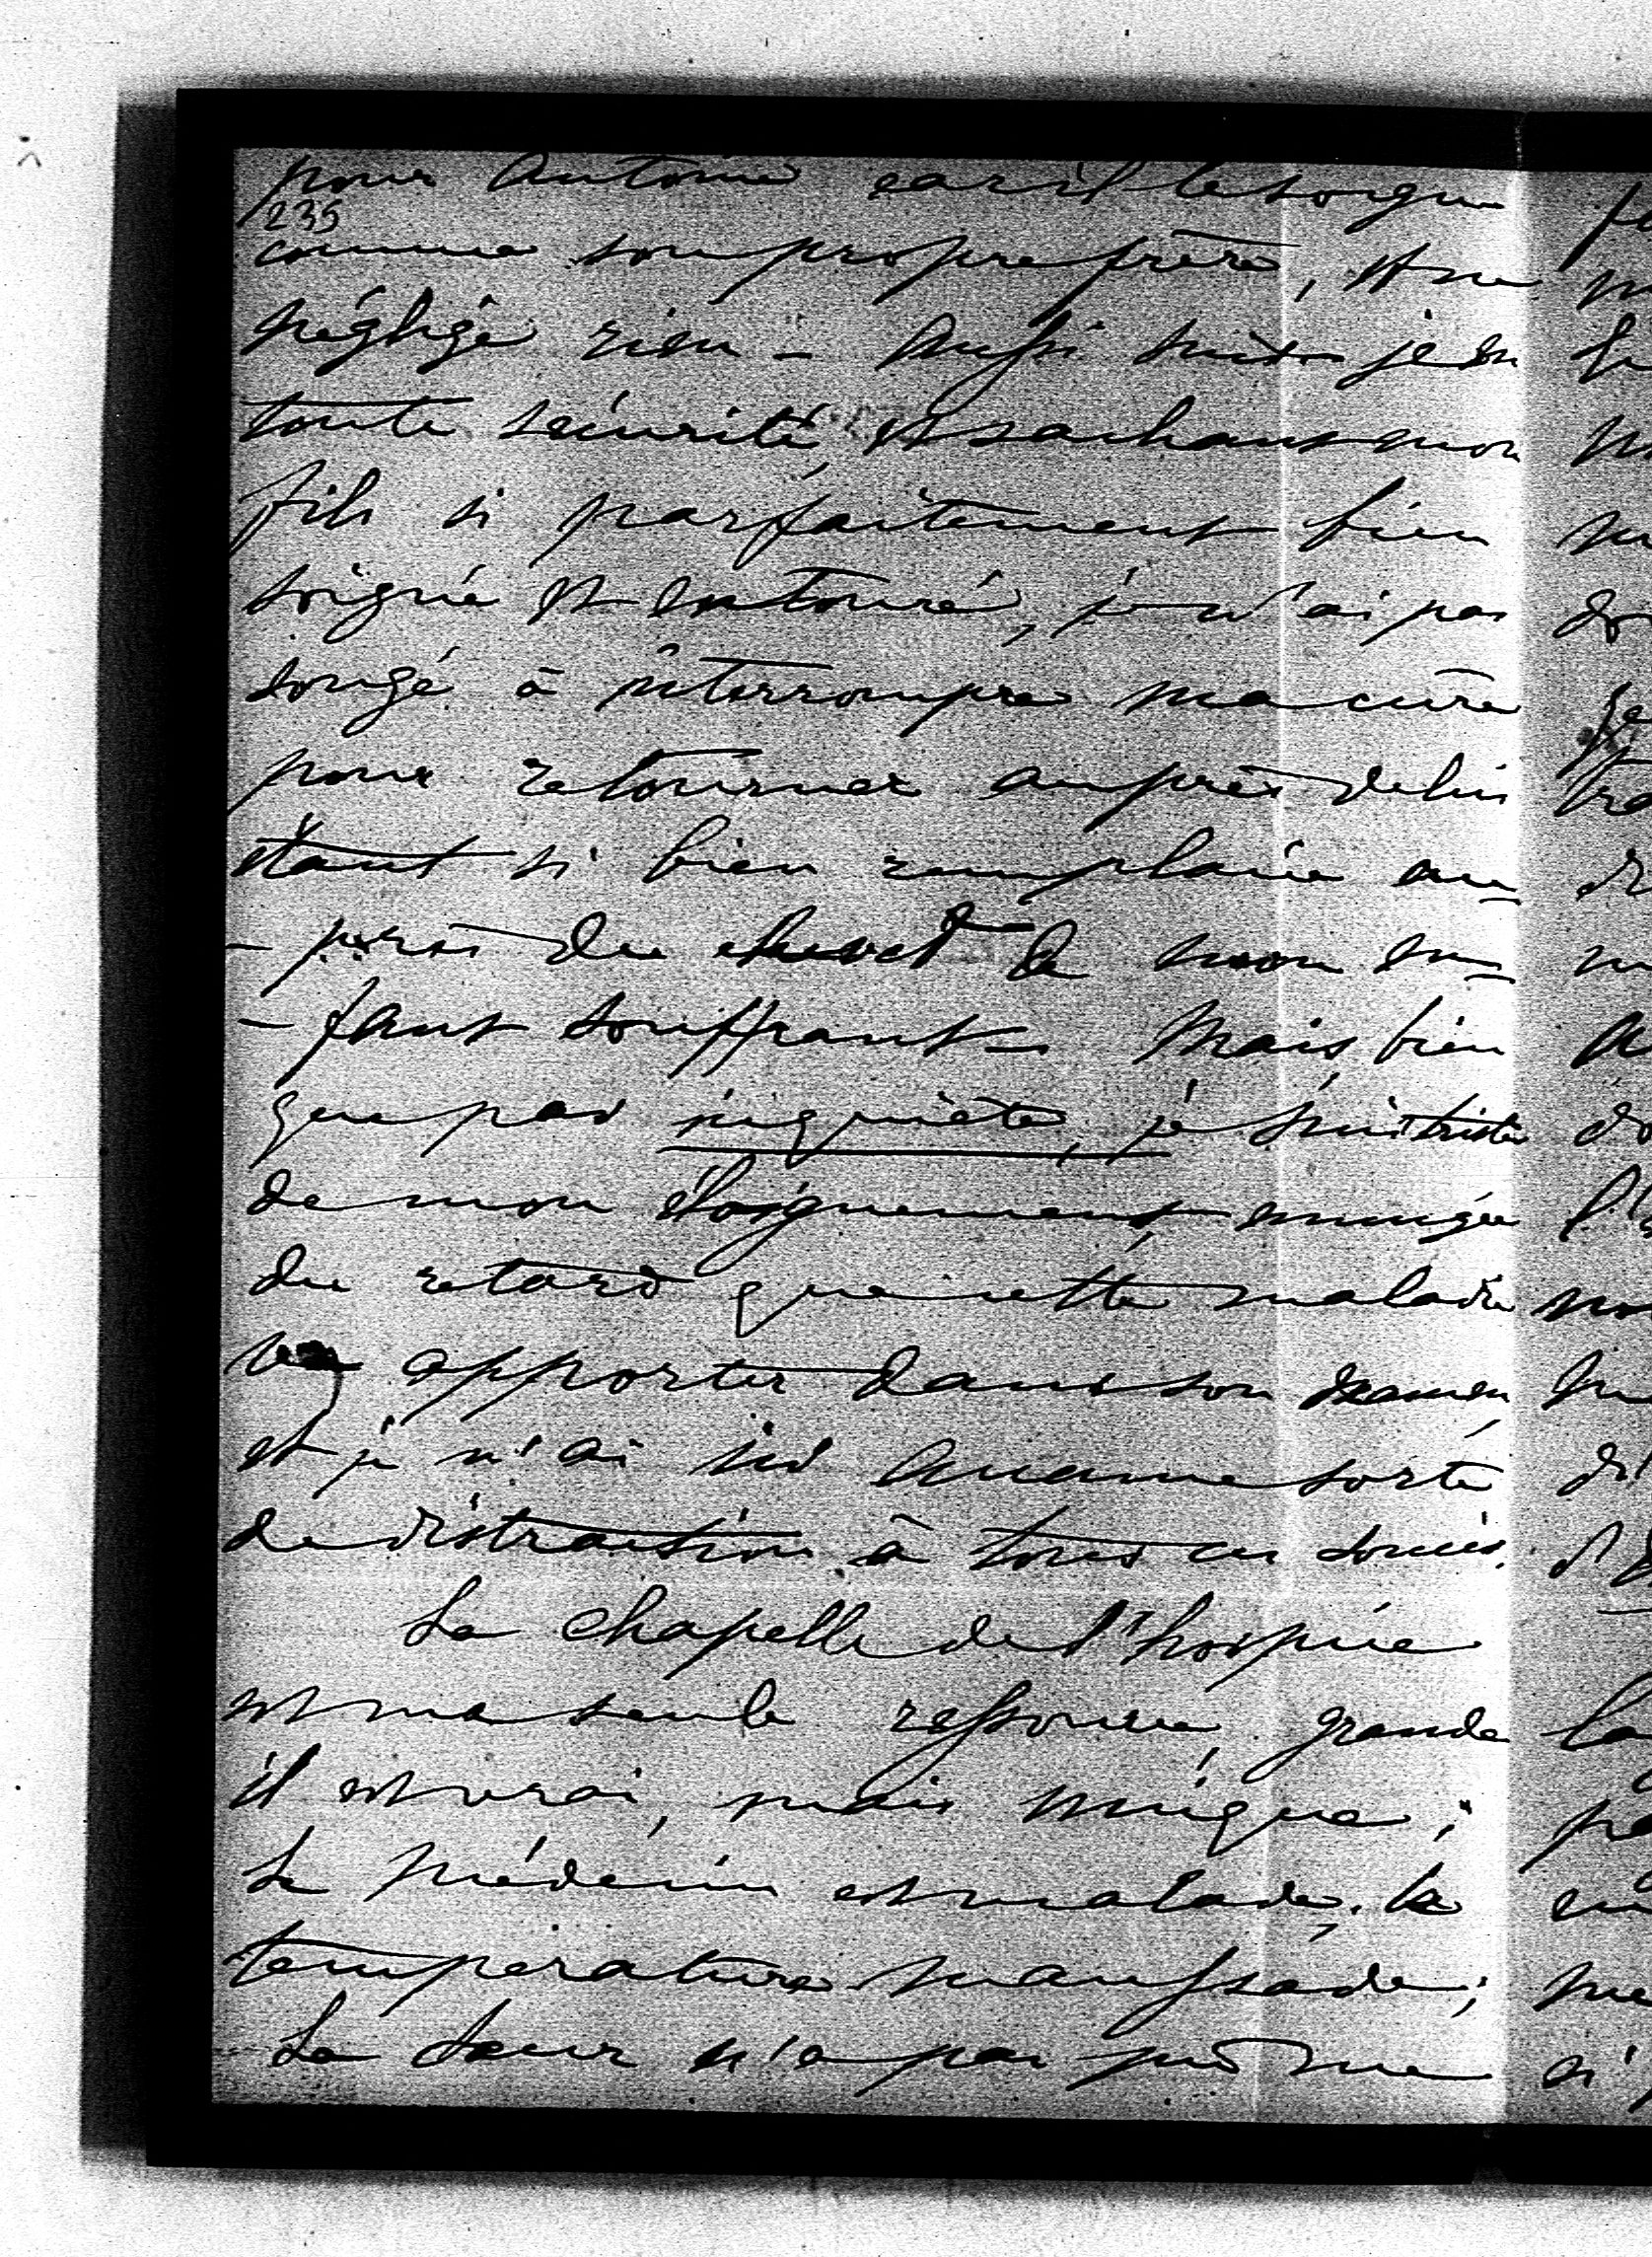 pour Antoine car il le soigne
235
comme son propre frère, et ne
néglige rien - Aussi suis-je en
toute sécurité, et sachant mon
fils si parfaitement bien
soigné et entouré, je n'ai pas
songé à interrompre ma cure
pour retourner auprès de lui
étant si bien remplacée au-
-près du chevet de mon en-
-fant souffrant - Mais, bien
que pas inquiète, je suis triste
de mon éloignement, ennuyée
du retard que cette maladie
va apporter dans son examen,
et je n'ai ici aucune sorte
de distraction à tous ces soucis.
La chapelle de l'hospice
est ma seule ressource, grande
il est vrai, mais unique ;
Le médecin est malade, la
température maussade ;
La Sœur n'a pas pu me